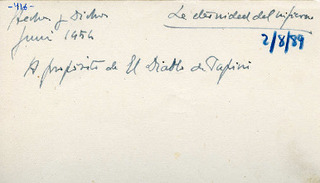 -416-
Hechos y Dichos
Junio 1954
La eternidad del infierno
2/8/89
A propósito de El Diablo de Papini